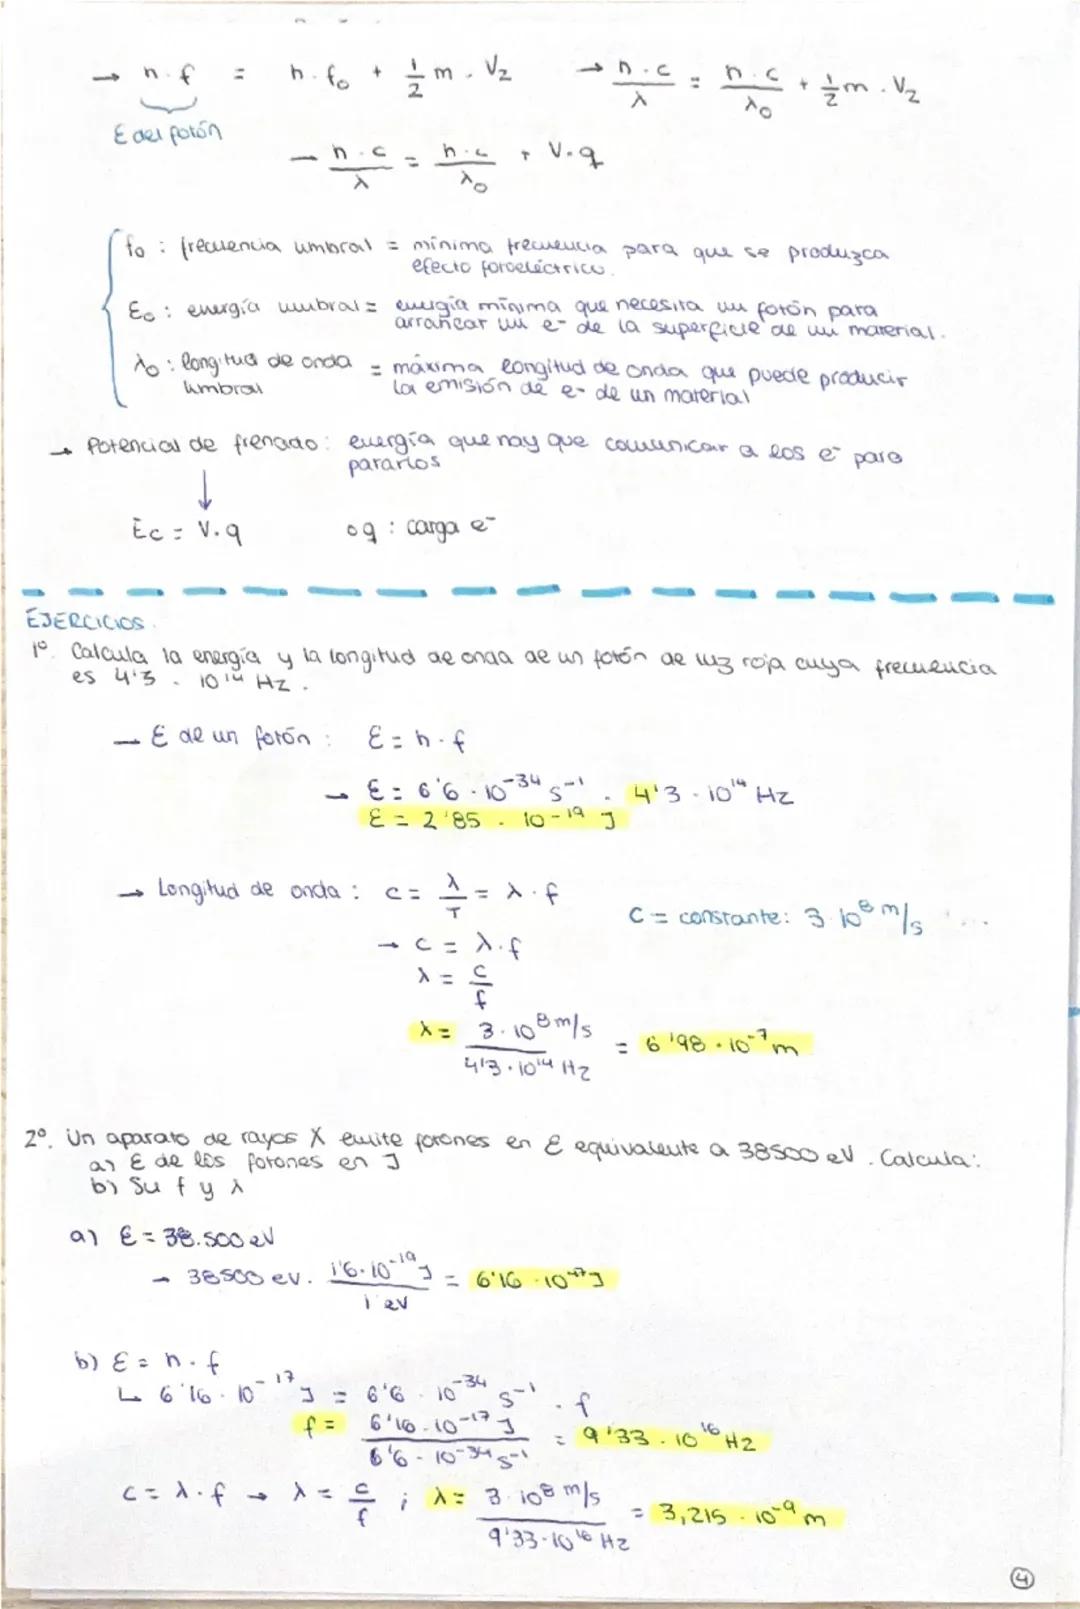 → h · f = h · f₀ + 1/2 m · V₂ → h · c / λ = h · c / λ₀ + 1/2 m · V₂
E del fotón
→ h · c / λ = h · c / λ₀ + V · q
f₀ : frecuencia umbral = mínima frecuencia para que se produzca
efecto fotoeléctrico.
E₀ : energía umbral = energía mínima que necesita un fotón para
arrancar un e- de la superficie de un material.
λ₀ : longitud de onda = máxima longitud de onda que puede producir
umbral la emisión de e- de un material
→ Potencial de frenado : energía que hay que comunicar a los e- para
pararlos
↓
Ec = V · q q : carga e-
EJERCICIOS.
1º. Calcula la energía y la longitud de onda de un fotón de luz roja cuya frecuencia
es 4'3 · 10¹⁴ Hz.
→ E de un fotón : E = h · f
→ E = 6'6 · 10⁻³⁴ s⁻¹ · 4'3 · 10¹⁴ Hz
E = 2'85 · 10⁻¹⁹ J
→ Longitud de onda : c = λ / T = λ · f
C = constante: 3·10⁸ m/s ...
→ c = λ · f
λ = c / f
λ = 3 · 10⁸ m/s / 4'3 · 10¹⁴ Hz = 6'98 · 10⁻⁷ m
2º. Un aparato de rayos X emite fotones en E equivalente a 38500 eV. Calcula:
a) E de los fotones en J
b) Su f y λ
a) E = 38.500 eV
→ 38500 eV · 1'6 · 10⁻¹⁹ J / 1 eV = 6'16 · 10⁻¹⁷ J
b) E = h · f
↳ 6'16 · 10⁻¹⁷ J = 6'6 · 10⁻³⁴ s⁻¹ · f
f = 6'16 · 10⁻¹⁷ J / 6'6 · 10⁻³⁴ s⁻¹ = 9'33 · 10¹⁶ Hz
c = λ · f → λ = c / f ; λ = 3 · 10⁸ m/s / 9'33 · 10¹⁶ Hz = 3,215 · 10⁻⁹ m
4